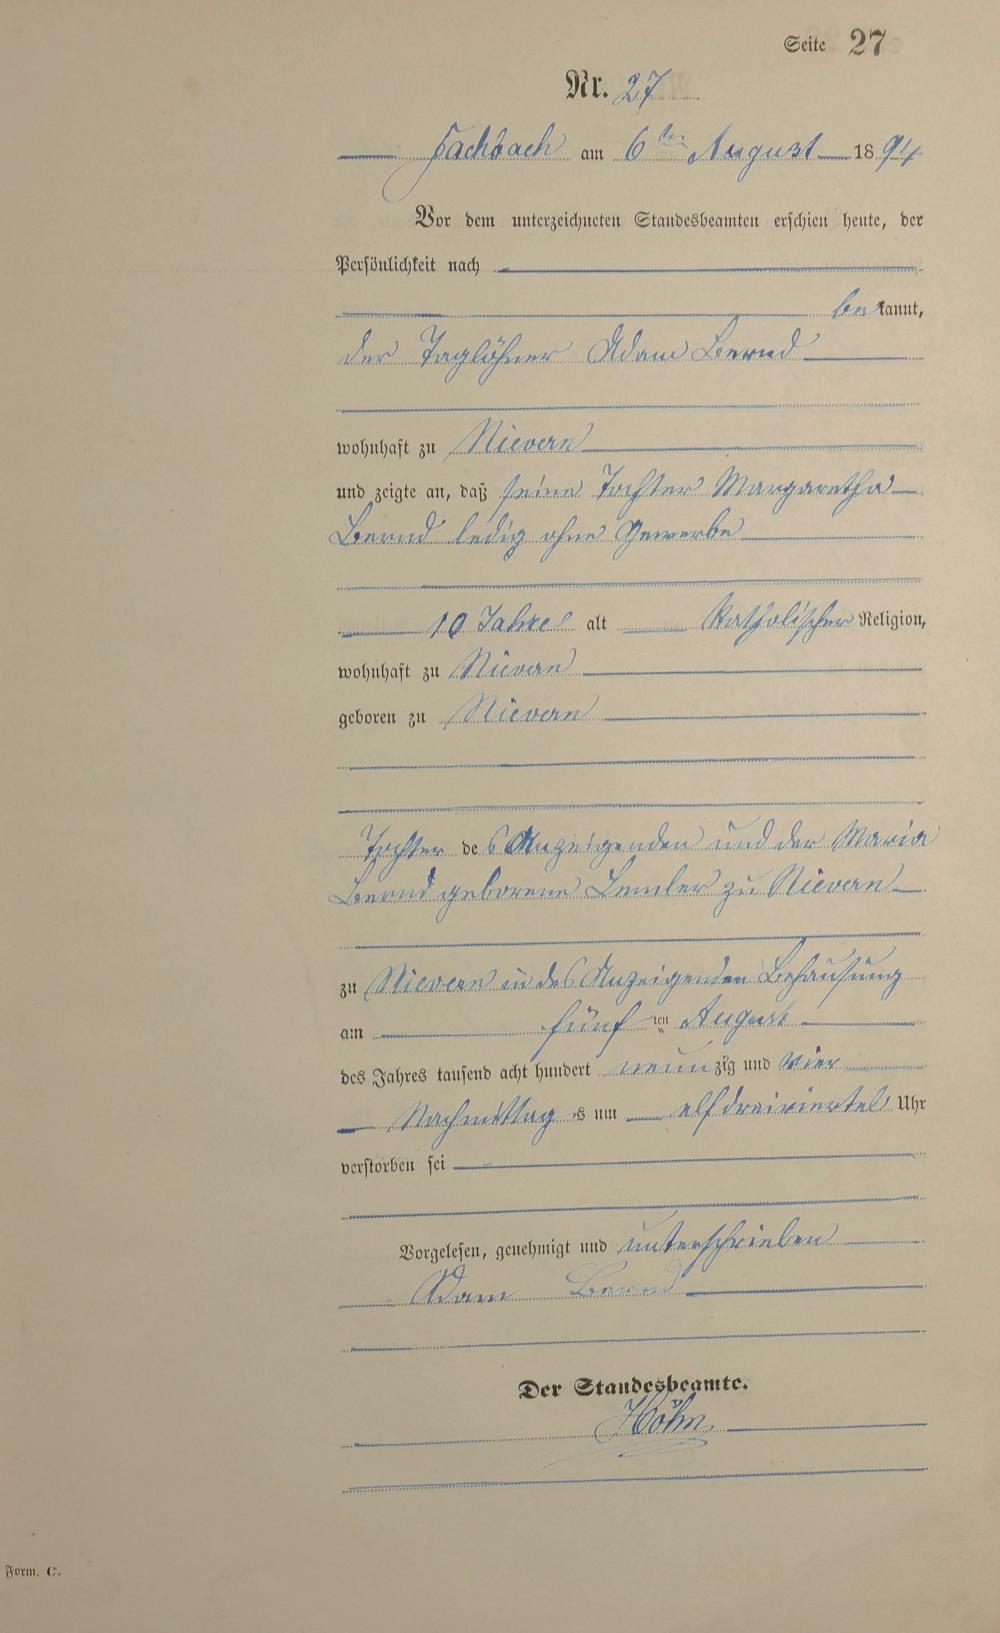 Seite 27
Nr. 27
Fachbach am 6ten August 1894
Vor dem unterzeichneten Standesbeamten erschien heute, der
Persönlichkeit nach
bekannt,
der Taglöhner Adam Bernd
wohnhaft zu Nievern
und zeigte an, daß seine Tochter Margaretha
Bernd ledig ohne Gewerbe
10 Jahre alt katholischer Religion,
wohnhaft zu Nievern
geboren zu Nievern
Tochter des Anzeigenden und der Maria
Bernd geborene zu Nievern
zu Nievern in des Anzeigenden Behausung
am fünften August
des Jahres tausend acht hundert neunzig und vier
Nachmittags um elfdreiviertel Uhr
verstorben sei
Vorgelesen, genehmigt und unterschrieben
Adam Bernd
Der Standesbeamte.
Höhn
Form. C.